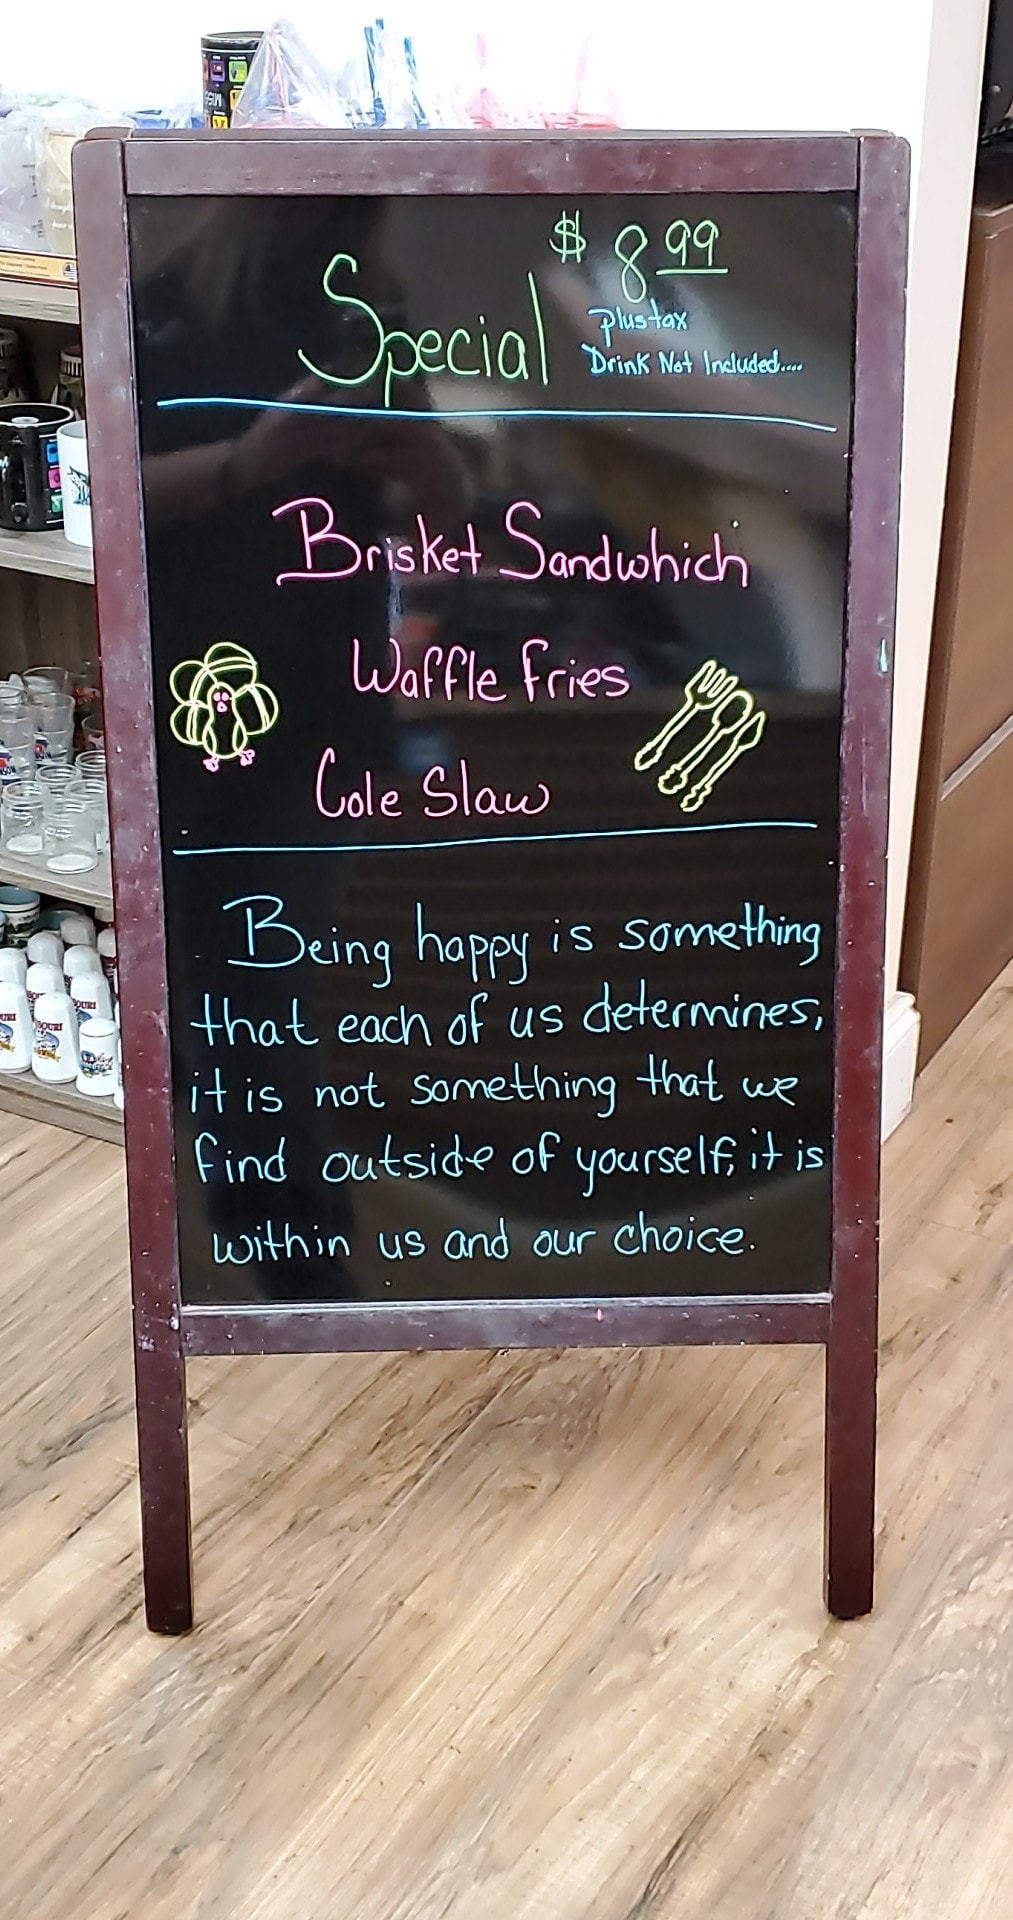 $ 8 99
Special
plus tax
Drink Not Included....
Brisket Sandwhich
Waffle fries
Cole Slaw
Being happy is something
that each of us determines,
it is not something that we
find outside of yourself, it is
within us and our choice.